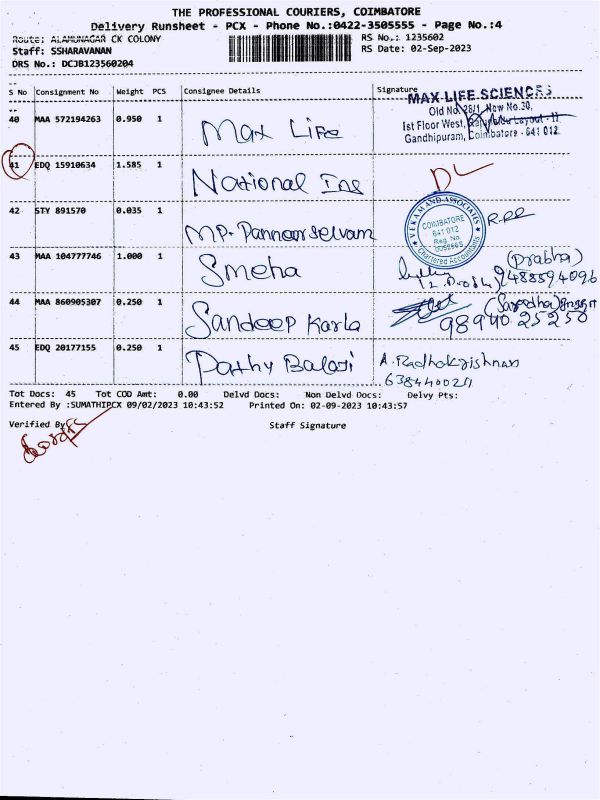 THE PROFESSIONAL COURIERS, COIMBATORE
Delivery Runsheet - PCX - Phone No.:0422-3505555 - Page No.:4
Route: ALAMUNAGAR CK COLONY
RS No.: 1235602
Staff: SSHARAVANAN
RS Date: 02-Sep-2023
DRS No.: DCJB123560204
S No Consignment No Weight PCS Consignee Details Signature
40 MAA 572194263 0.950 1 Max Life
MAX LIFE SCIENCES
Old No. 26/1, New No.30,
1st Floor West,
Gandhipuram, Coimbatore - 641 012.
41 EDQ 15910634 1.585 1 National Ins DL
42 STY 891570 0.035 1 MP. Panneerselvam
VEKAM AND ASSOCIATES
COIMBATORE
641 012
Reg. No
Chartered Accountants
43 MAA 104777746 1.000 1 Smeha
(Prabha)
9488594096
44 MAA 860905307 0.250 1 Sandeep Karla
98940 25250
45 EDQ 20177155 0.250 1 Pathy Balaji
A. Radhakrishnan
Tot Docs: 45 Tot COD Amt: 0.00 Delvd Docs: Non Delvd Docs: Delvy Pts:
Entered By :SUMATHIPCX 09/02/2023 10:43:52 Printed On: 02-09-2023 10:43:57
Verified By
Staff Signature